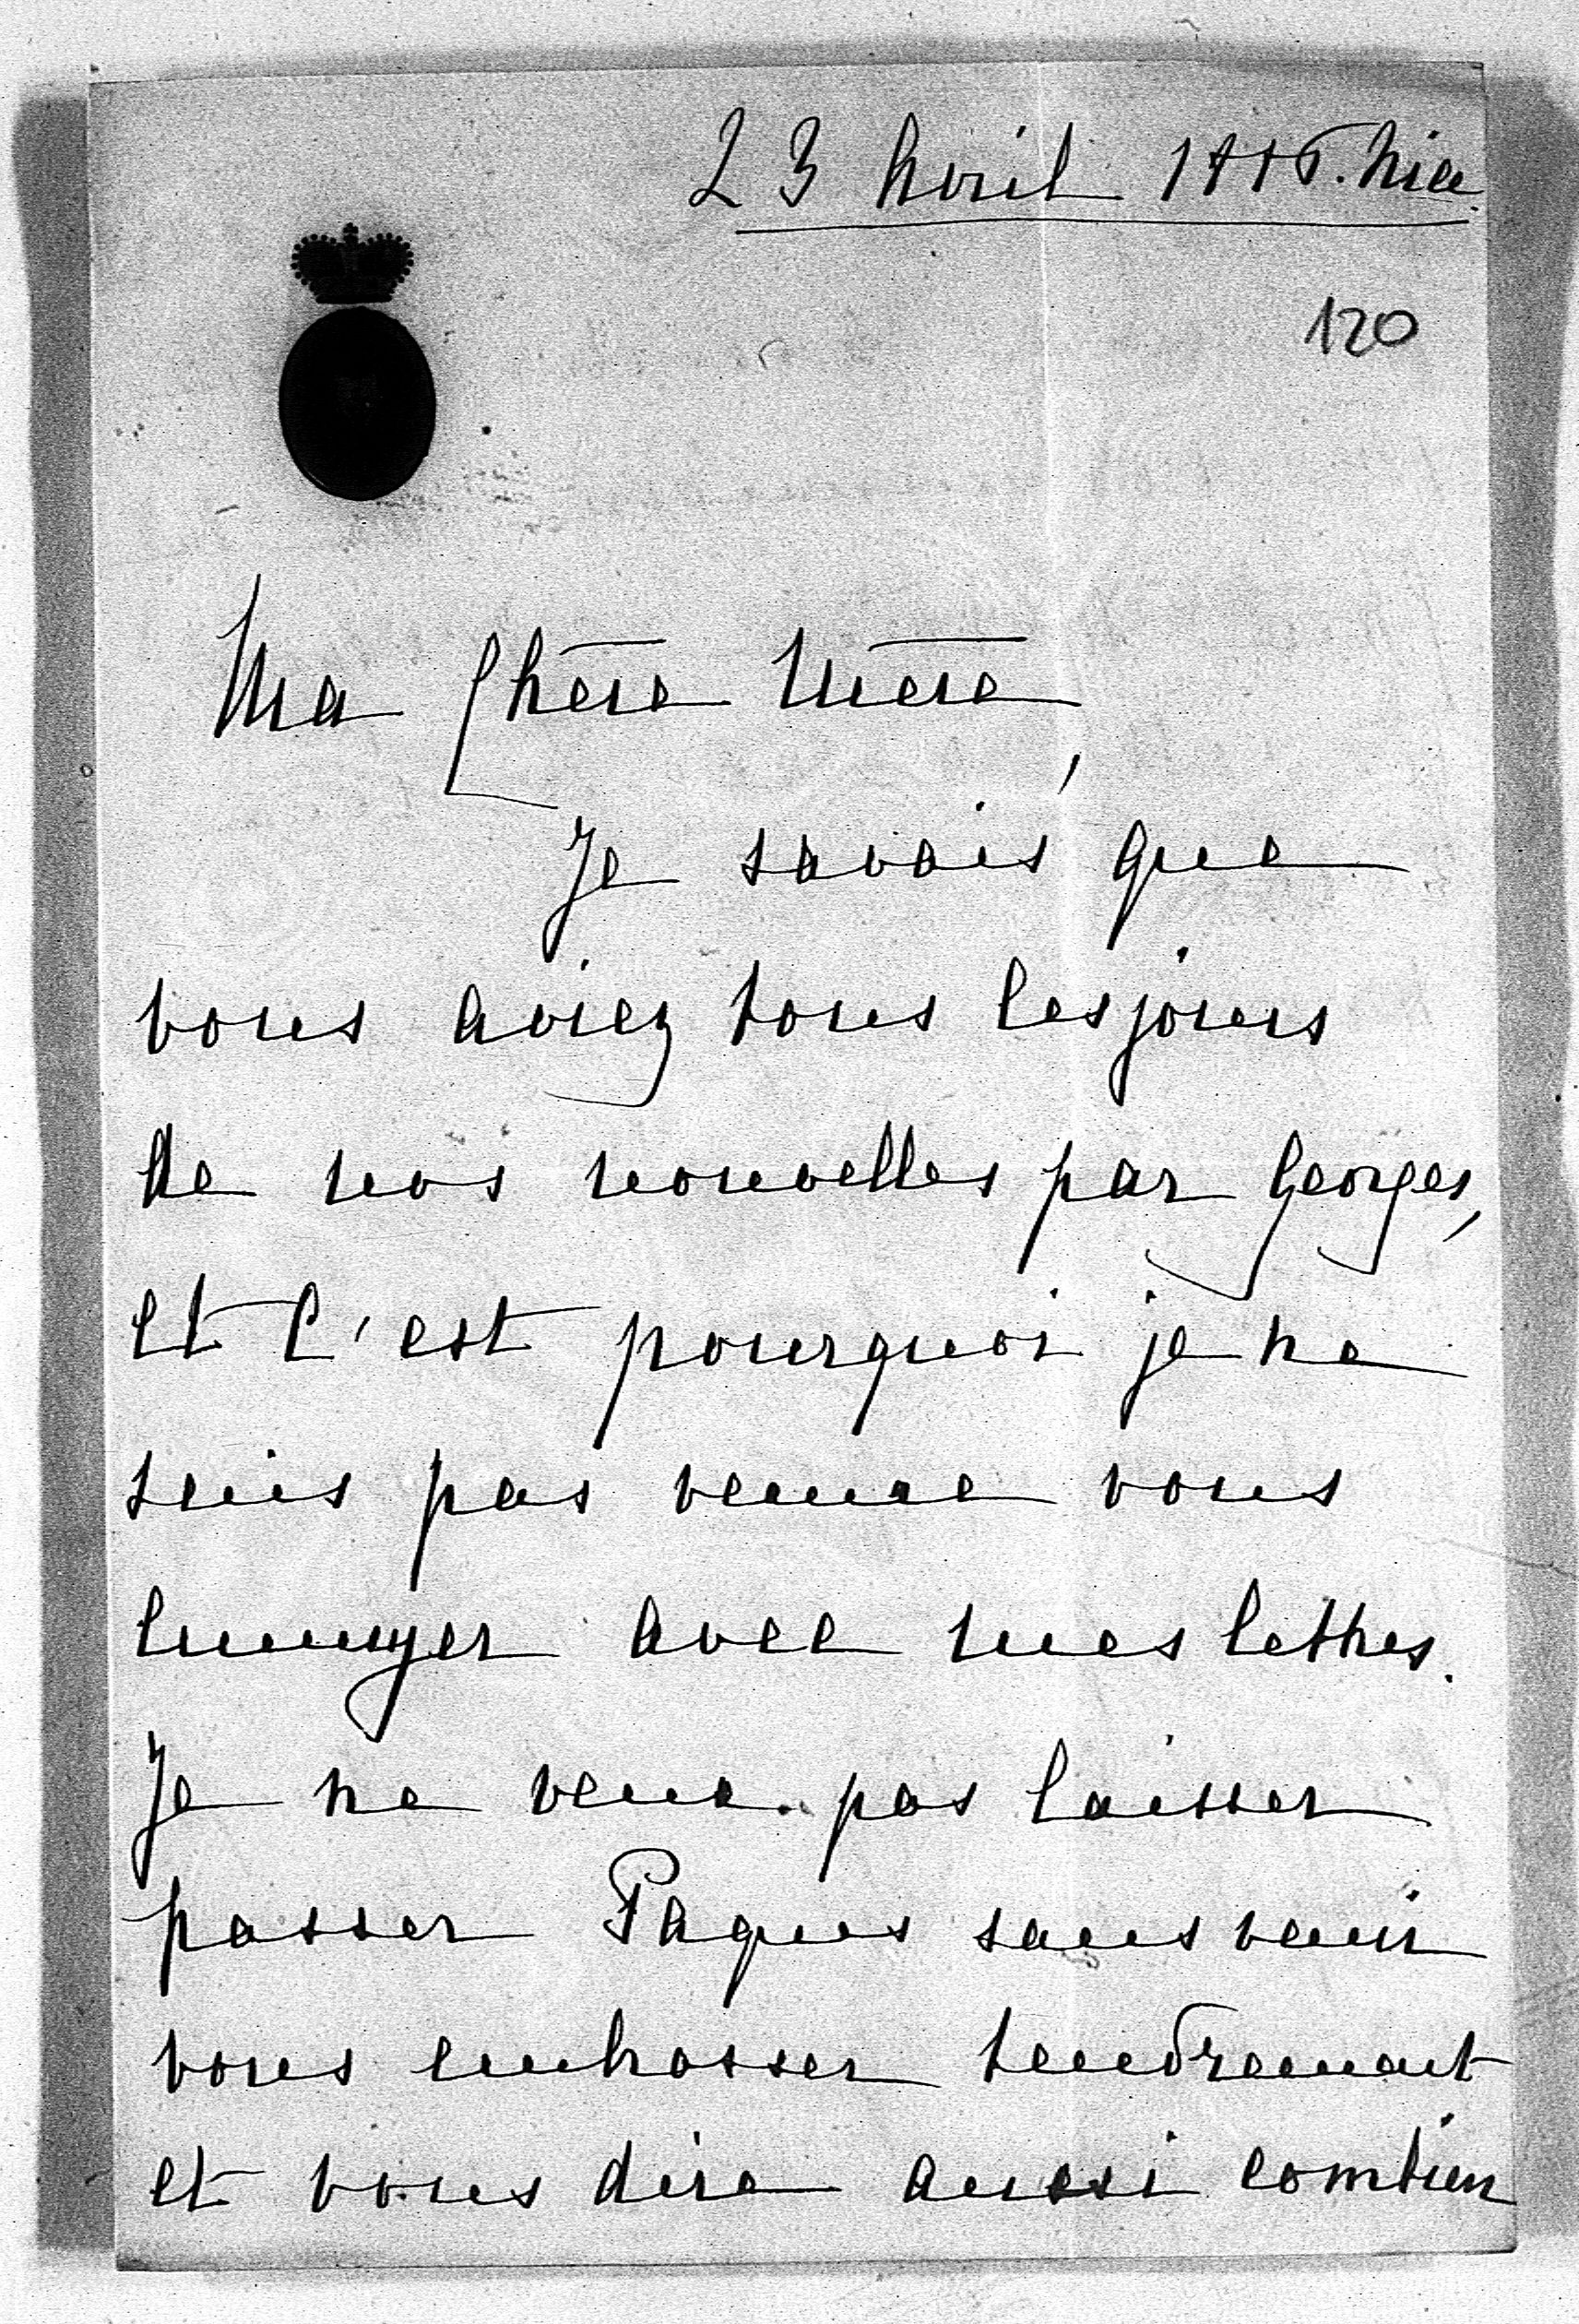 23 Avril 1886. Nice.
120
Ma Chère Mère,
Je savais que
vous aviez tous les jours
de nos nouvelles par Georges,
et c'est pourquoi je ne
suis pas venue vous
ennuyer avec mes lettres.
Je ne veux pas laisser
passer Pâques sans venir
vous embrasser tendrement
et vous dire aussi combien